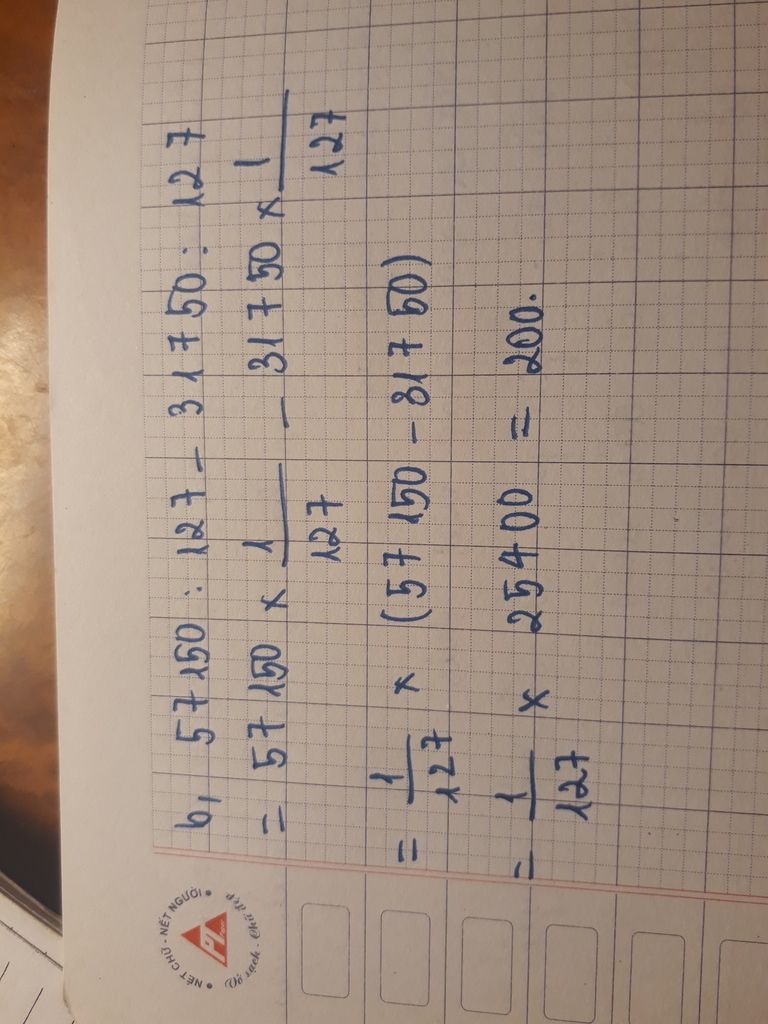 b, 57150 : 127 - 31750 : 127
= 57150 x 1/127 - 31750 x 1/127
= 1/127 x (57150 - 31750)
= 1/127 x 25400 = 200.
NÉT CHỮ - NẾT NGƯỜI
Vở sạch - Chữ đẹp